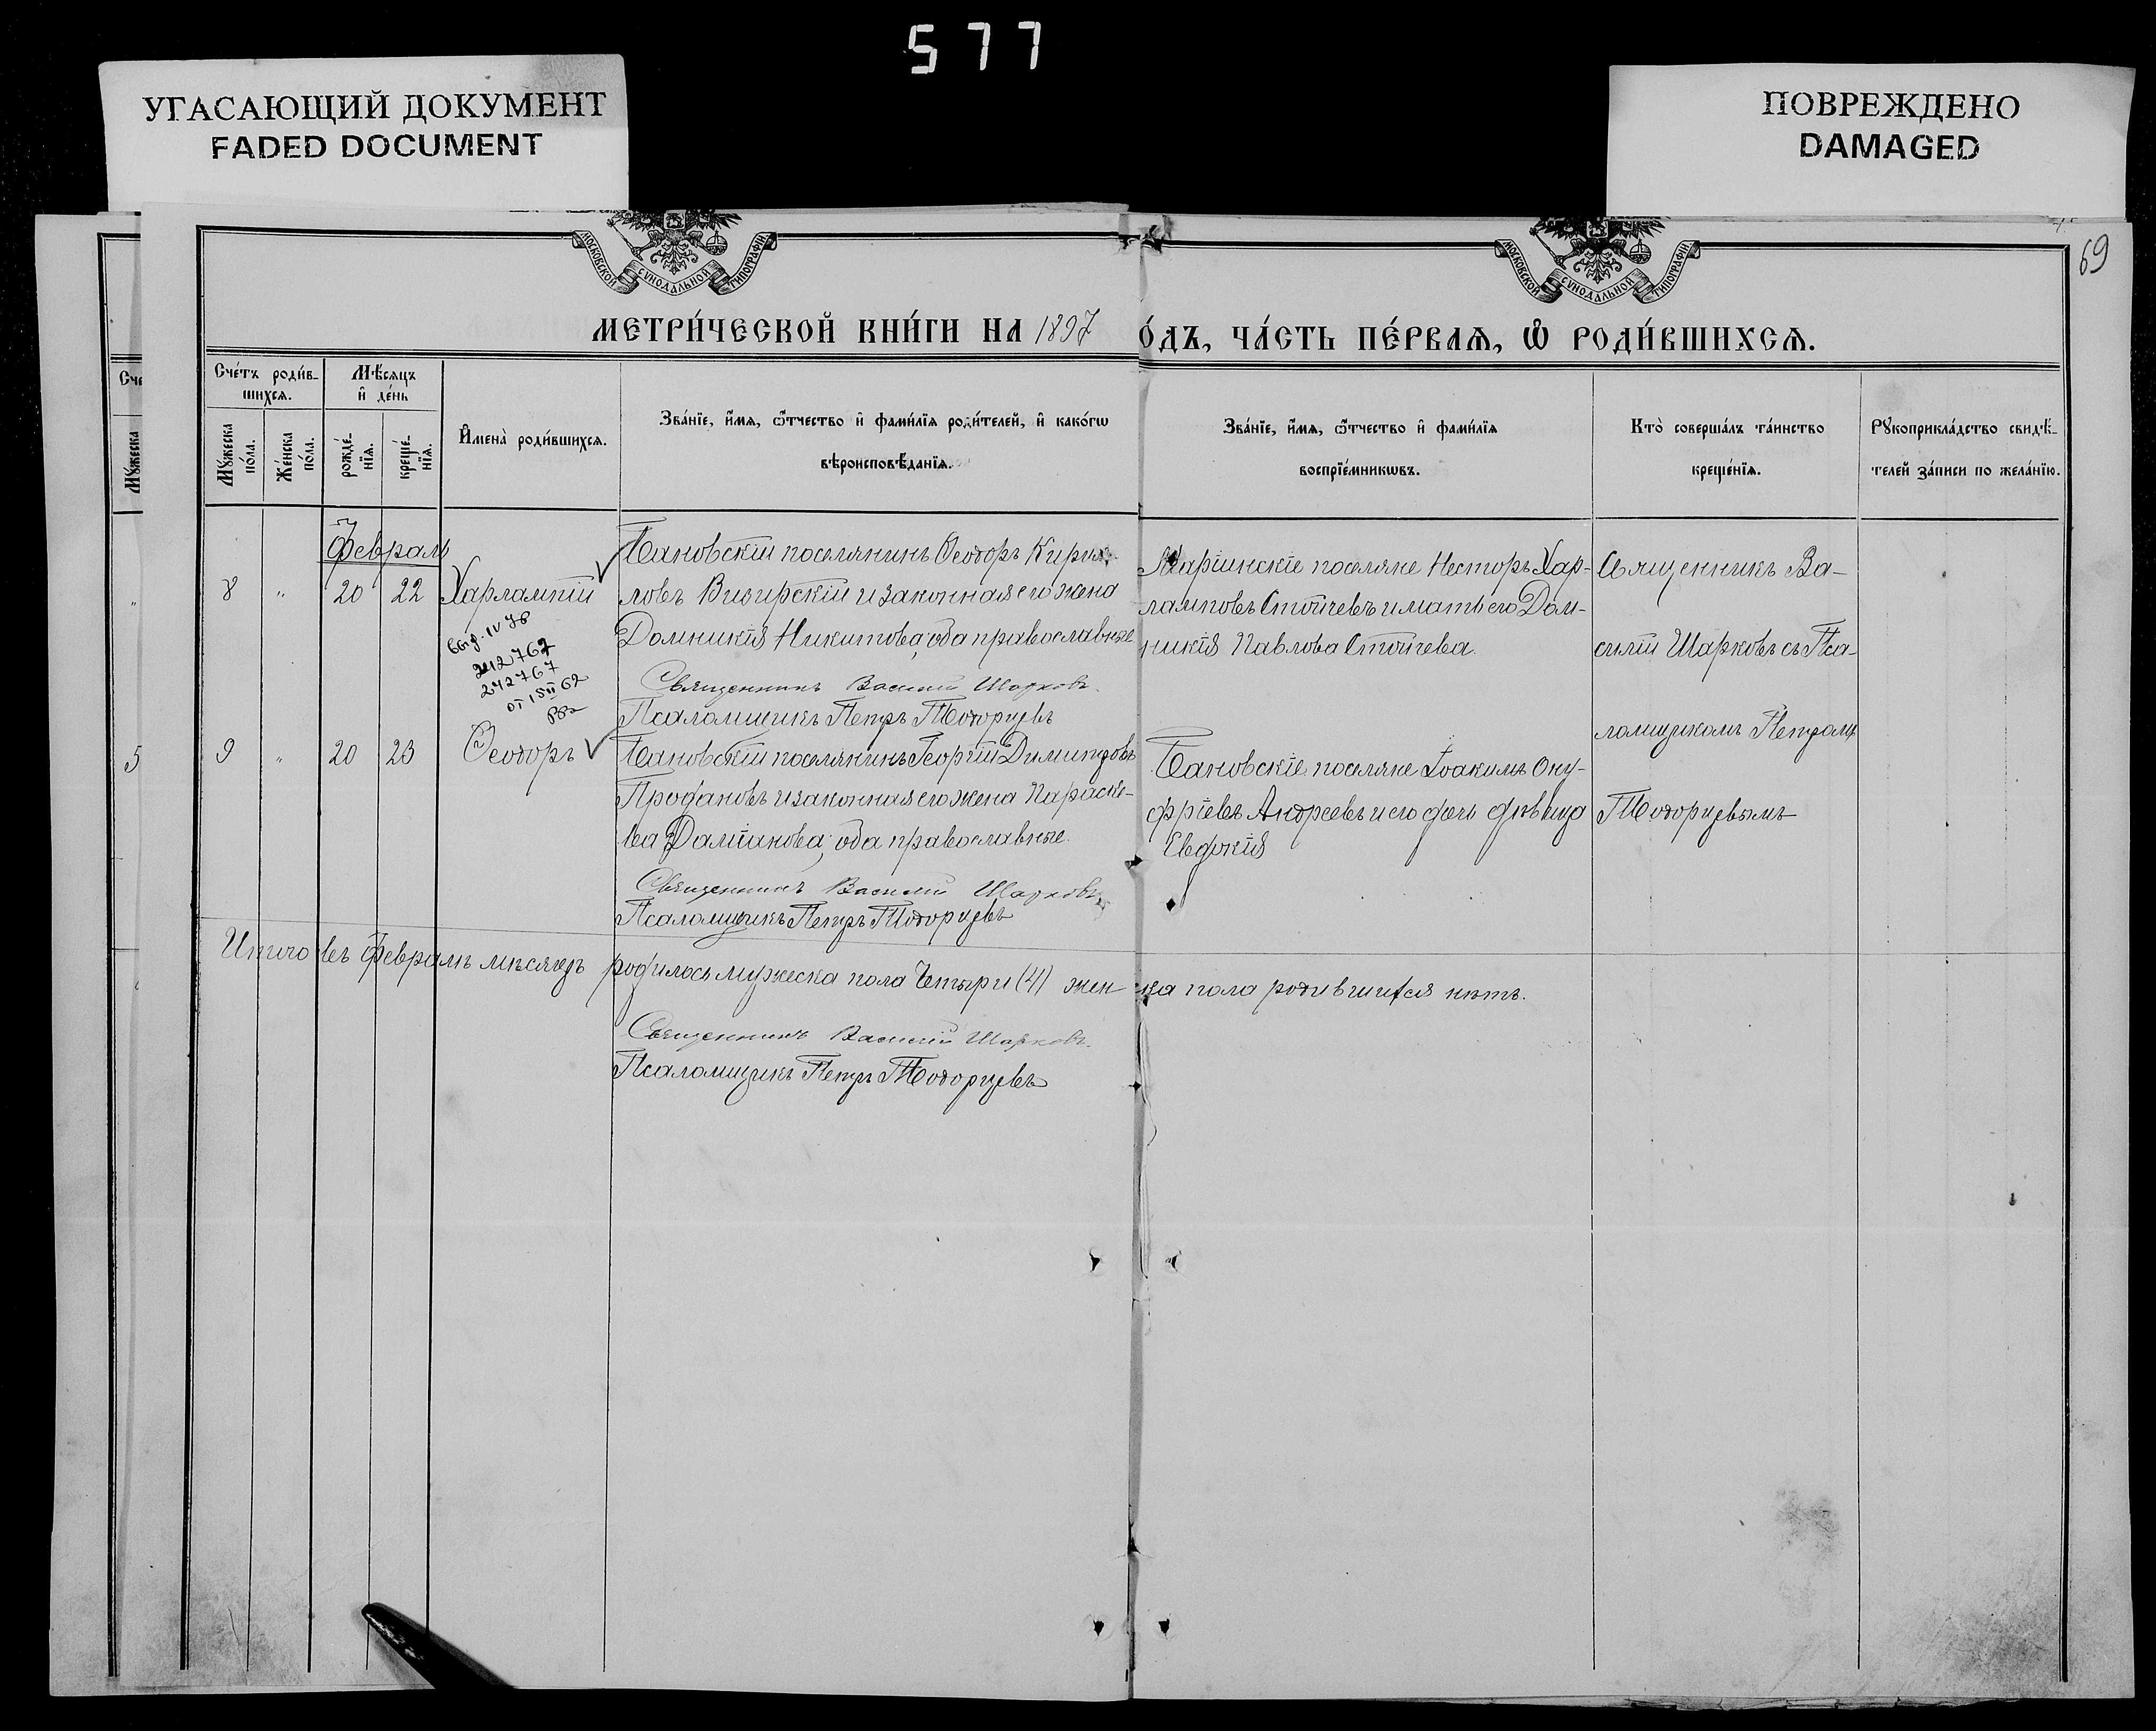 577
УГАСАЮЩИЙ ДОКУМЕНТ
FADED DOCUMENT
ПОВРЕЖДЕНО
DAMAGED
МОСКОВСКОЙ СѴНОДАЛЬНОЙ ТИПОГРАФІИ
МОСКОВСКОЙ СѴНОДАЛЬНОЙ ТИПОГРАФІИ
69
МЕТРИ́ЧЕСКОЙ КНИ́ГИ НА 1897
О́ДЪ, ЧА́СТЬ ПЕ́РВАѦ, Ѡ҆ РОДИ́ВШИХСѦ.
Сче́тъ роди́в-
шихся.
Мѣ́сяцъ
и҆ де́нь
Мꙋ́жеска
по́ла.
Же́нска
по́ла.
рожде́-
нїя.
креще́-
нїя.
И҆мена̀ роди́вшихся.
Зва́нїе, и҆́мя, ѻ҆́тчество и҆ фами́лїя роди́телей, и҆ како́гѡ
вѣроисповѣ́данїя.
Зва́нїе, и҆́мя, ѻ҆́тчество и҆ фами́лїя
воспрїе́мникѡвъ.
Кто̀ соверша́лъ та́инство
креще́нїя.
Рꙋкоприкла́дство свидѣ́-
телей за́писи по жела́нїю.
Сче
Мꙋ́жеска
5
Февраль
8 " 20 22 Харлампій
Бановскій поселянинъ Ѳеодоръ Кирил-
ловъ Визирскій и законная его жена
Домникія Никитова, оба православные
Священникъ Василій Шарковъ.
Псаломщикъ Петръ Тодорцевъ
Маріинскіе поселяне Несторъ Хар-
лам­повъ Стойчевъ и мать его Дом-
никія Павлова Стойчева.
Священникъ Ва-
силій Шарковъ съ Пса-
ломщикомъ Петромъ
Тодорцевымъ
242767
от 15 II 62
9 " 20 23 Ѳеодоръ
Бановскій поселянинъ Георгій Димитровъ
Продановъ и законная его жена Параске-
ва Даміанова, оба православные.
Священникъ Василій Шарковъ
Псаломщикъ Петръ Тодорцевъ
Бановскіе поселяне Іоакимъ Ону-
фріевъ Андреевъ и его дочь дѣвица
Евдокія
Итого въ Февралѣ мѣсяцѣ родилось мужеска пола Четыри (4) женска пола родившихся нѣтъ.
Священникъ Василій Шарковъ.
Псаломщикъ Петръ Тодорцевъ